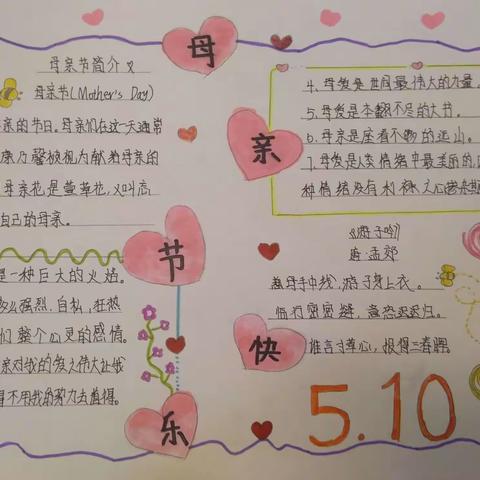 母亲节快乐
母亲节简介
母亲节(Mother's Day)
亲的节日。母亲们在这一天通常
康乃馨被视为献给母亲的
母亲花是萱草花,又叫忘
自己的母亲。
是一种巨大的火焰。
么强烈、自私、狂热
们整个心灵的感情。
亲对我的爱之伟大让我
得不用我的努力去值得。
4.母爱是世间最伟大的力量。
5.母爱是本翻不尽的大书。
6.母亲是座看不够的远山。
7.母爱是人类情绪中最美丽的
种情绪没有利禄之心
《游子吟》
唐 孟郊
慈母手中线,游子身上衣。
临行密密缝,意恐迟迟归。
谁言寸草心,报得三春晖。
5.10